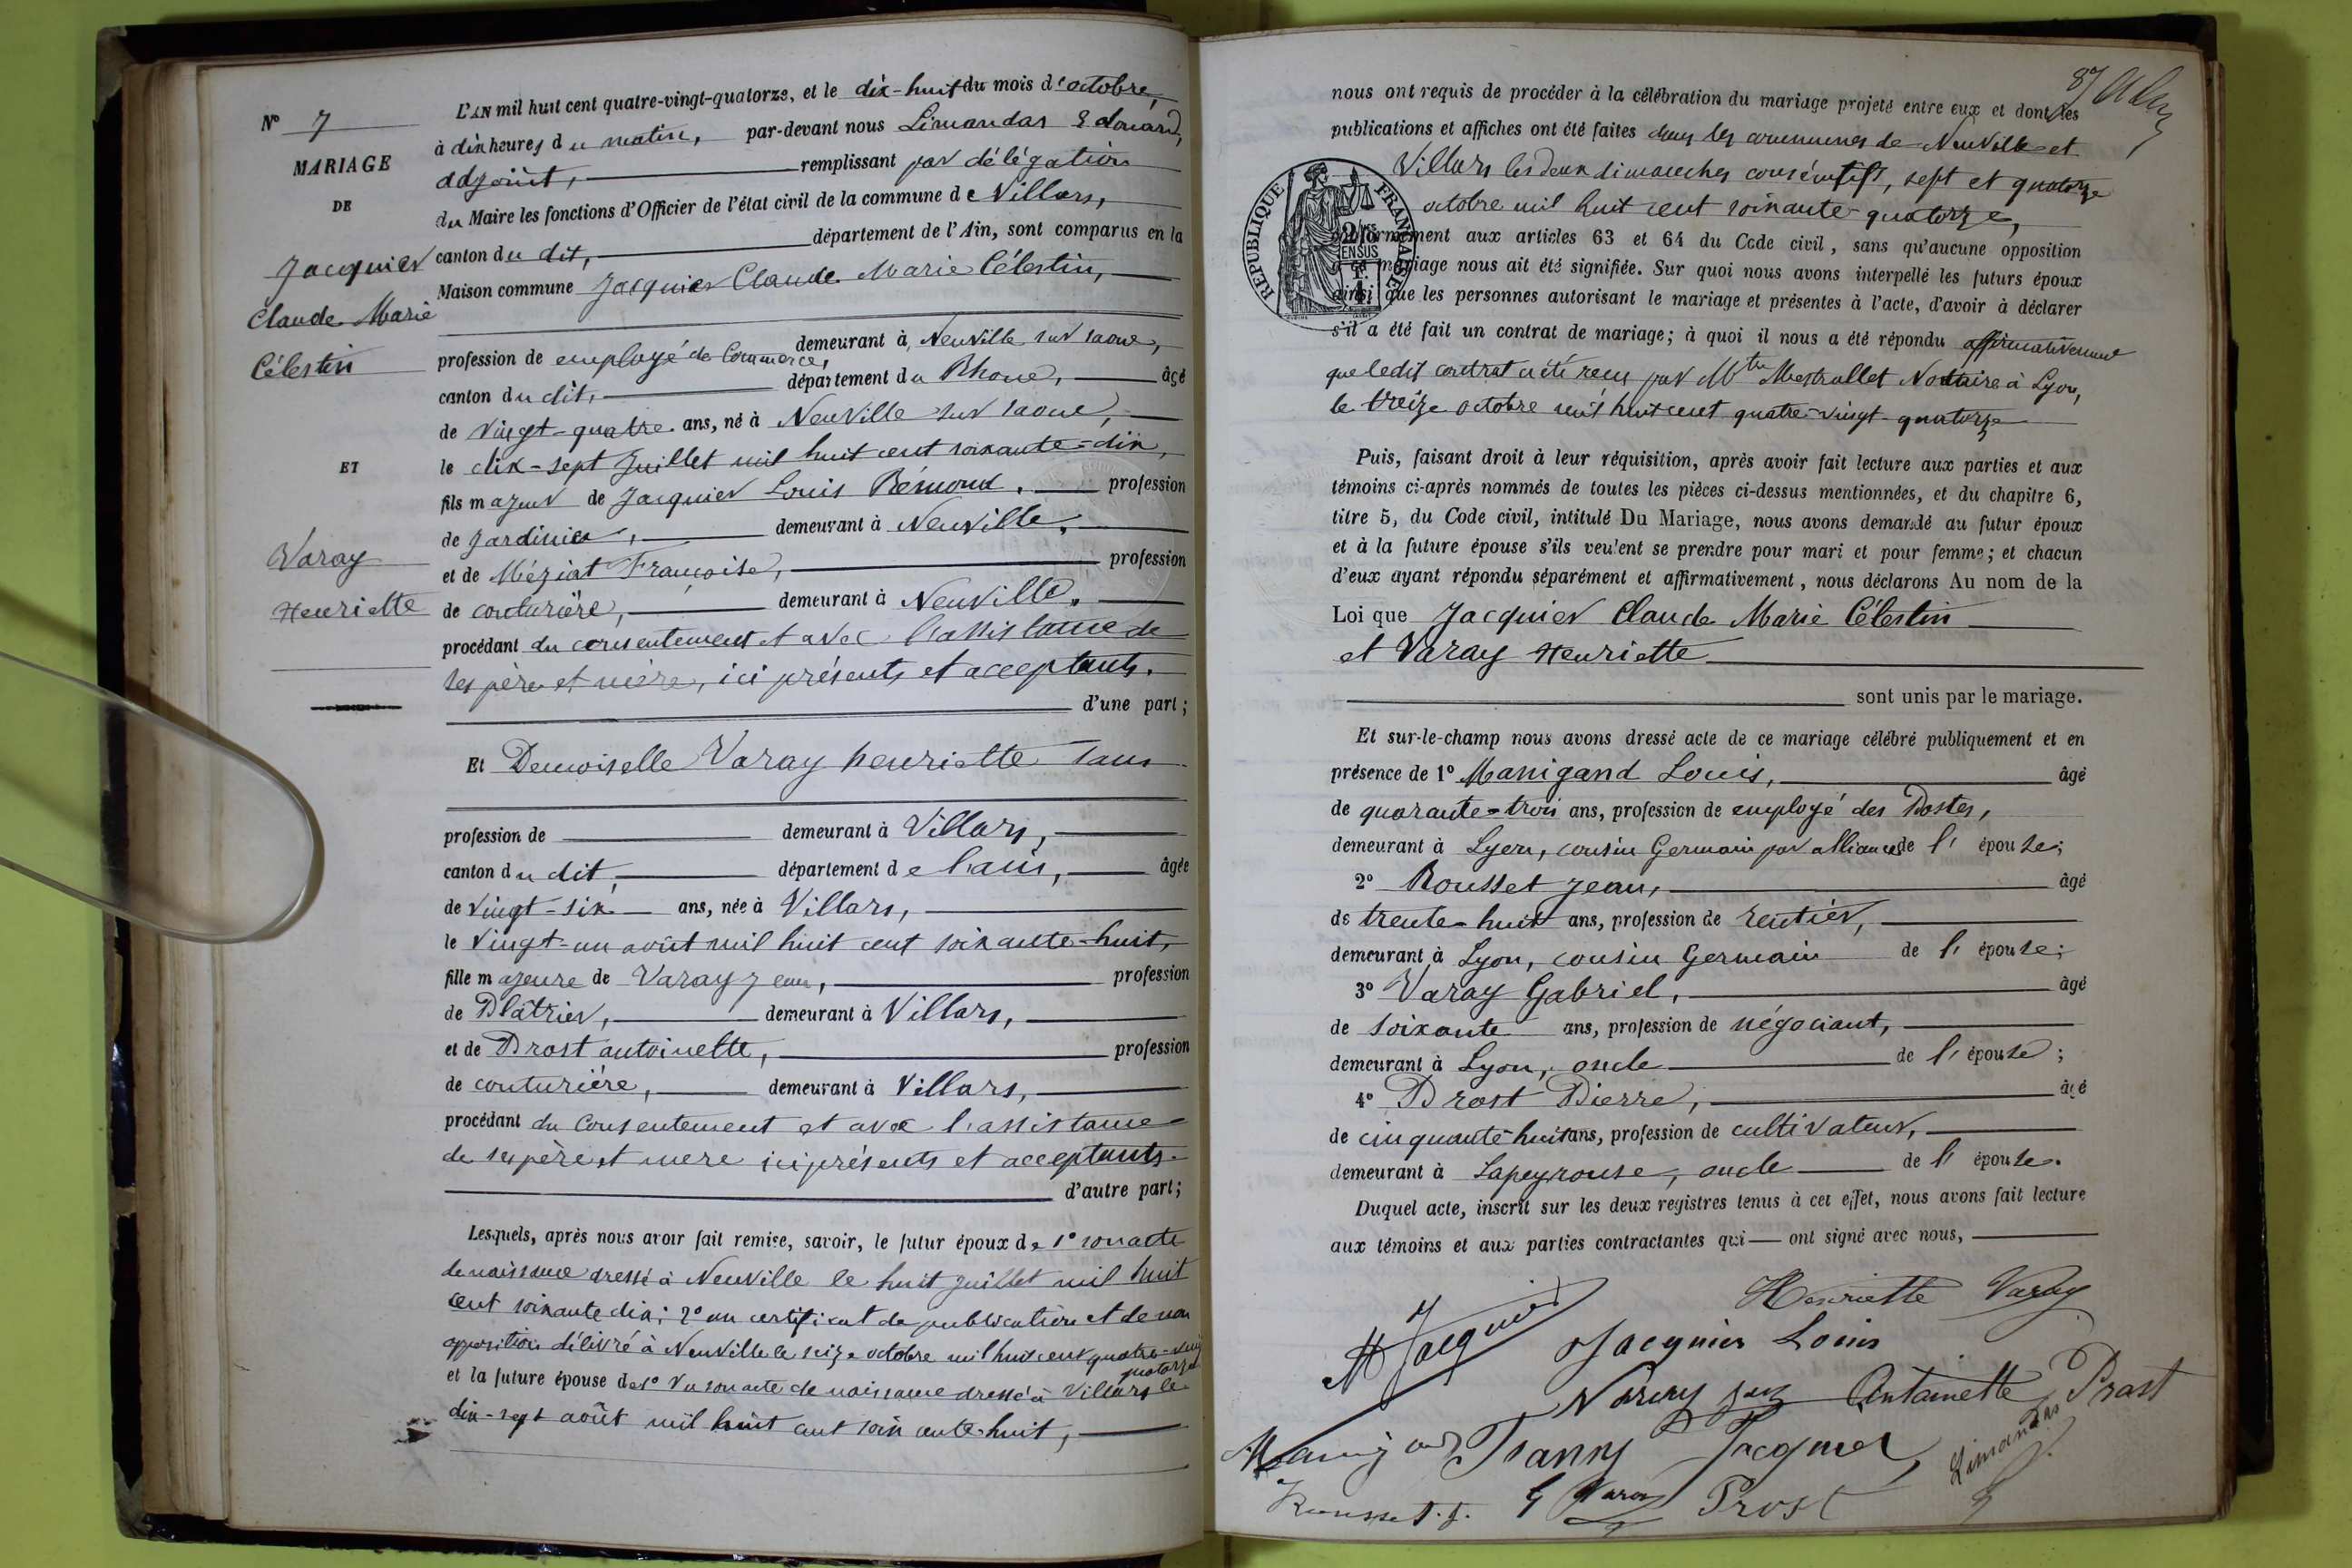 N° 7
MARIAGE
DE
Jacquier
Claude Marie
Célestin
ET
Varay
Henriette
L'AN mil huit cent quatre-vingt-quatorze, et le dix-huit du mois d'octobre,
à dix heures du matin, par-devant nous Limandas Edouard,
adjoint, remplissant par délégation
du Maire les fonctions d'Officier de l'état civil de la commune de Villars,
canton du dit, département de l'Ain, sont comparus en la
Maison commune Jacquier Claude Marie Célestin,
profession de employé de Commerce, demeurant à Neuville sur saone,
canton du dit, département du Rhone, âgé
de vingt-quatre ans, né à Neuville sur saone,
le dix-sept Juillet mil huit cent soixante-dix,
fils majeur de Jacquier Louis Rémond, profession
de Jardinier, demeurant à Neuville,
et de Méziat Françoise, profession
de couturière, demeurant à Neuville,
procédant du consentement et avec l'assistance de
ses père et mère, ici présents et acceptants.
d'une part;
Et Demoiselle Varay henriette sans
profession de demeurant à Villars,
canton du dit, département de l'ain, âgée
de vingt-six ans, née à Villars,
le vingt-un août mil huit cent soixante-huit,
fille majeure de Varay Jean, profession
de Plâtrier, demeurant à Villars,
et de Prost antoinette, profession
de couturière, demeurant à Villars,
procédant du consentement et avec l'assistance
de ses père et mere ici présents et acceptants.
d'autre part;
Lesquels, après nous avoir fait remise, savoir, le futur époux de 1° son acte
de naissance dressé à Neuville le huit Juillet mil huit
cent soixante dix; 2° un certificat de publication et de non
opposition délivré à Neuville le seize octobre mil huit cent quatre-vingt
quatorze
et la future épouse de 1° Vu son acte de naissance dressé à Villars le
dix-sept août mil huit cent soixante-huit,
87
nous ont requis de procéder à la célébration du mariage projeté entre eux et dont les
publications et affiches ont été faites dans les communes de Neuville et
Villars les deux dimanches consécutifs, sept et quatorze
octobre mil huit cent soixante-quatorze,
RÉPUBLIQUE FRANÇAISE
2/10es EN SUS
conformément aux articles 63 et 64 du Code civil, sans qu'aucune opposition
à ce mariage nous ait été signifiée. Sur quoi nous avons interpellé les futurs époux
ainsi que les personnes autorisant le mariage et présentes à l'acte, d'avoir à déclarer
s'il a été fait un contrat de mariage; à quoi il nous a été répondu affirmativement
que ledit contrat a été reçu par Mtre Mestrallet Notaire à Lyon,
le treize octobre mil huit cent quatre-vingt-quatorze
Puis, faisant droit à leur réquisition, après avoir fait lecture aux parties et aux
témoins ci-après nommés de toutes les pièces ci-dessus mentionnées, et du chapitre 6,
titre 5, du Code civil, intitulé Du Mariage, nous avons demandé au futur époux
et à la future épouse s'ils veulent se prendre pour mari et pour femme; et chacun
d'eux ayant répondu séparément et affirmativement, nous déclarons Au nom de la
Loi que Jacquier Claude Marie Célestin
et Varay Henriette
sont unis par le mariage.
Et sur-le-champ nous avons dressé acte de ce mariage célébré publiquement et en
présence de 1° Manigand Louis, âgé
de quarante-trois ans, profession de employé des Postes,
demeurant à Lyon, cousin Germain par alliance de l'épouse;
2° Rousset Jean, âgé
de trente-huit ans, profession de rentier,
demeurant à Lyon, cousin Germain de l'épouse;
3° Varay Gabriel, âgé
de soixante ans, profession de négociant,
demeurant à Lyon, oncle de l'épouse;
4° Prost Pierre, âgé
de cinquante-huit ans, profession de cultivateur,
demeurant à Lapeyrouse, oncle de l'épouse.
Duquel acte, inscrit sur les deux registres tenus à cet effet, nous avons fait lecture
aux témoins et aux parties contractantes qui ont signé avec nous,
Henriette Varay
Jacquier
Jacquier Louis
Antoinette Prost
Manigand
Jacquier
Limandas
Rousset J.
G Varay
Prost